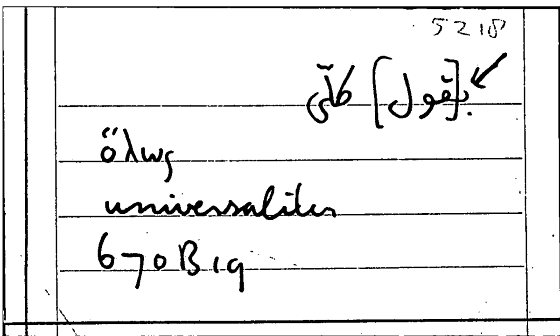 5218
بقول] كلّي
ὅλως
universaliter
670B19